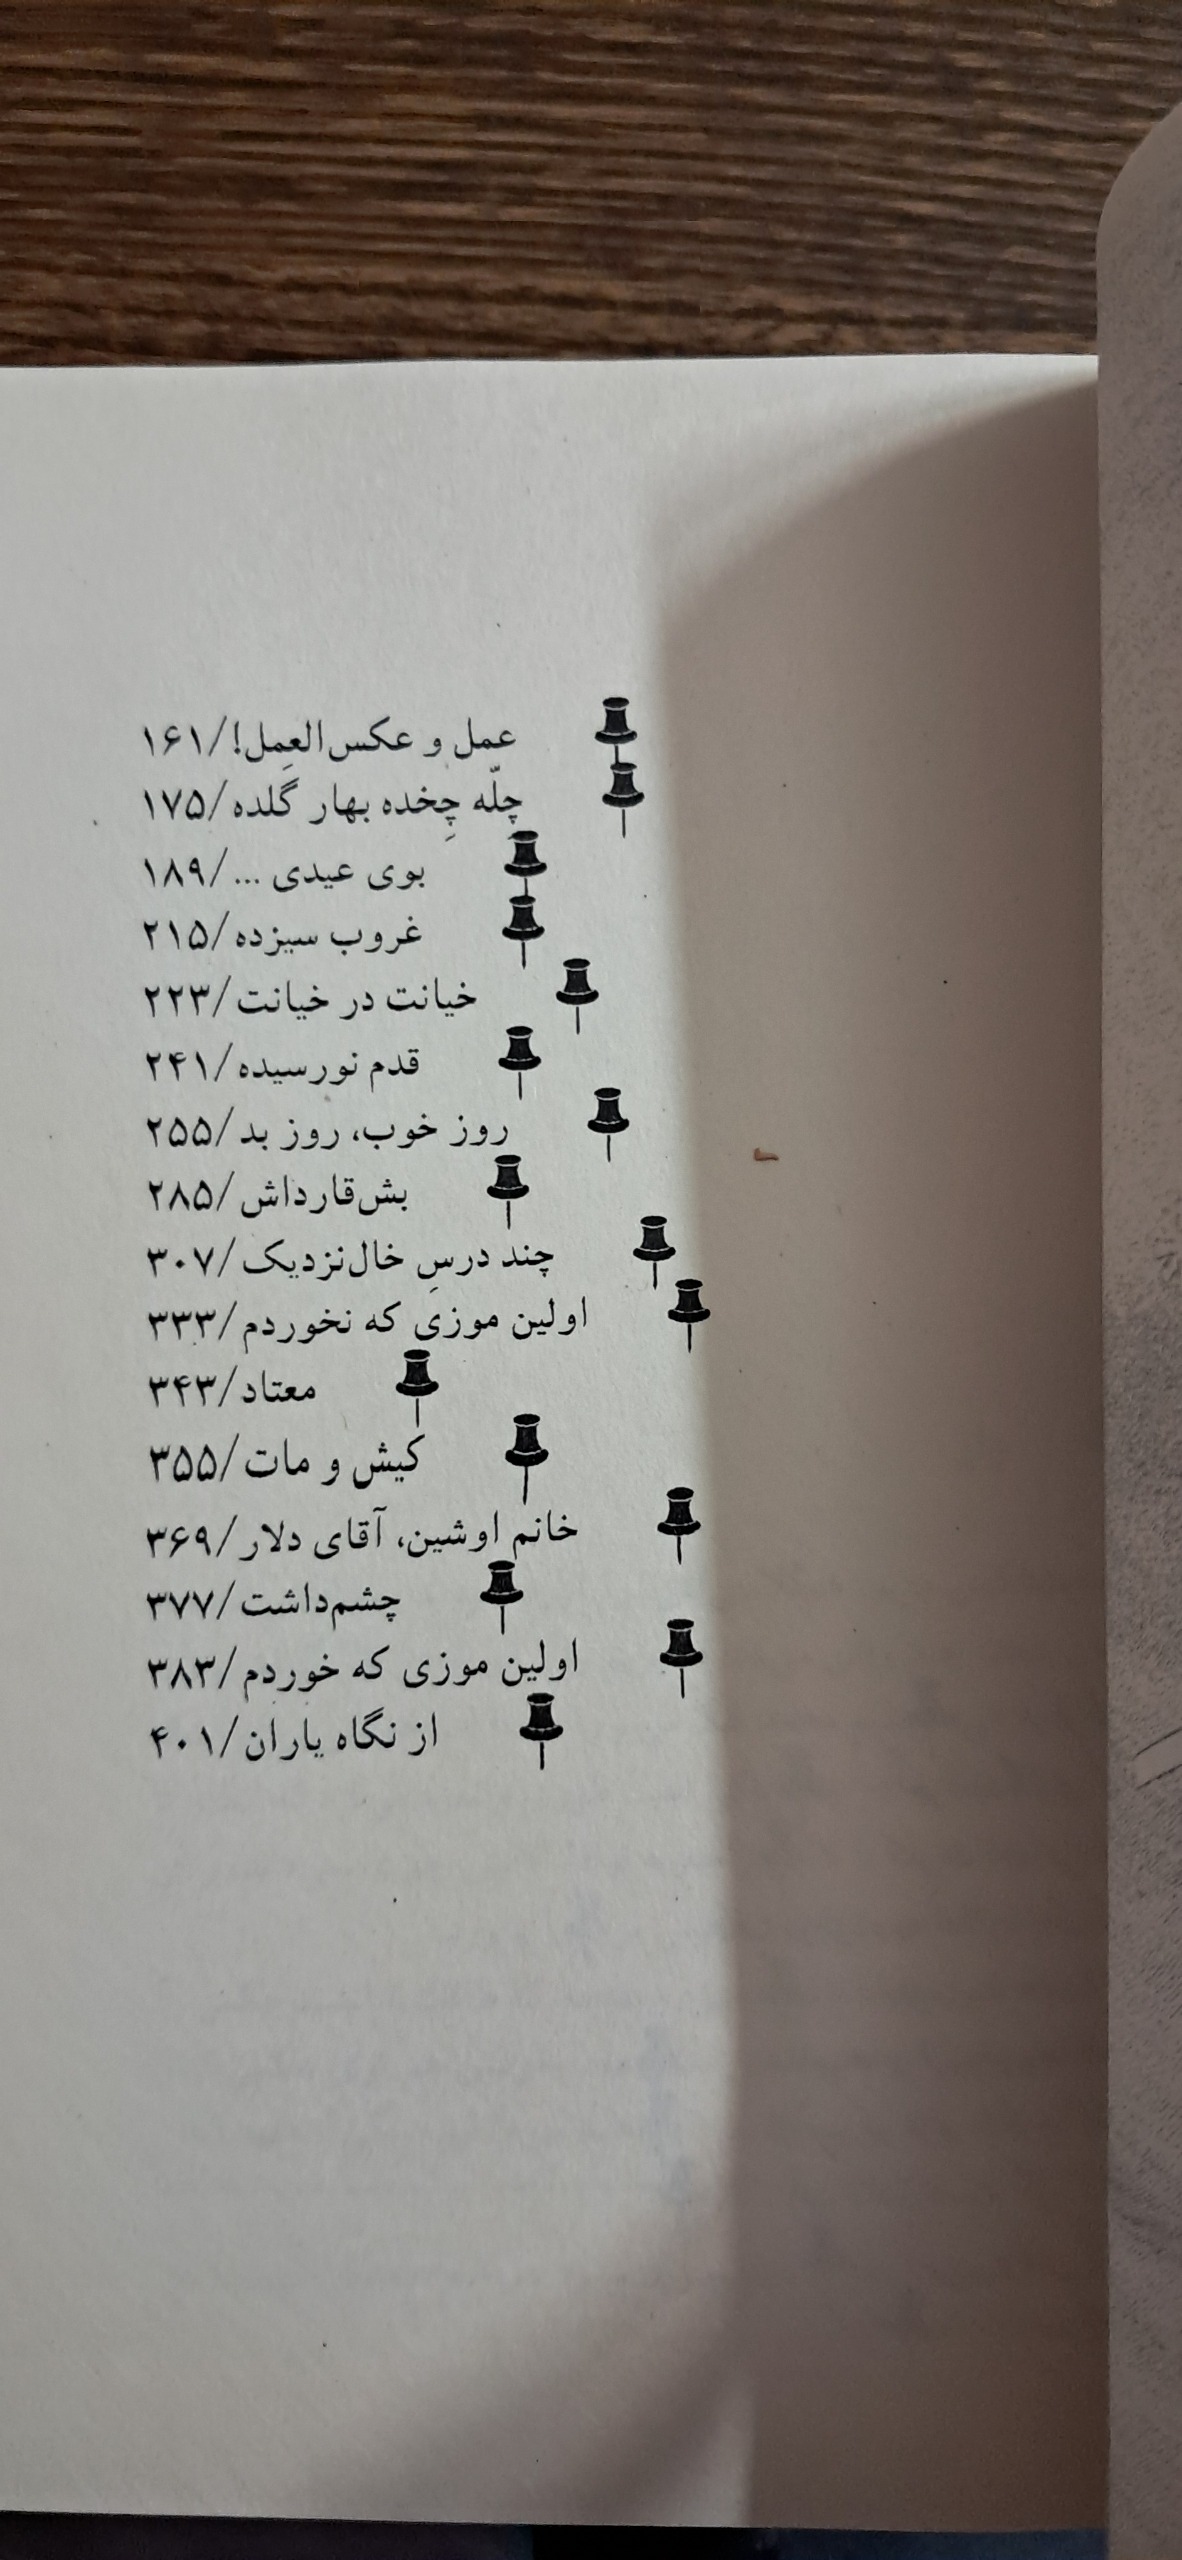 عمل و عکس‌العمِل!/۱۶۱
چِلّه چِخده بهار گَلده/۱۷۵
بوی عیدی .../۱۸۹
غروب سیزده/۲۱۵
خیانت در خیانت/۲۲۳
قدم نورسیده/۲۴۱
روز خوب، روز بد/۲۵۵
بش‌قارداش/۲۸۵
چند درسِ خال‌نزدیک/۳۰۷
اولین موزی که نخوردم/۳۳۳
معتاد/۳۴۳
کیش و مات/۳۵۵
خانم اوشین، آقای دلار/۳۶۹
چشم‌داشت/۳۷۷
اولین موزی که خوردم/۳۸۳
از نگاه یاران/۴۰۱